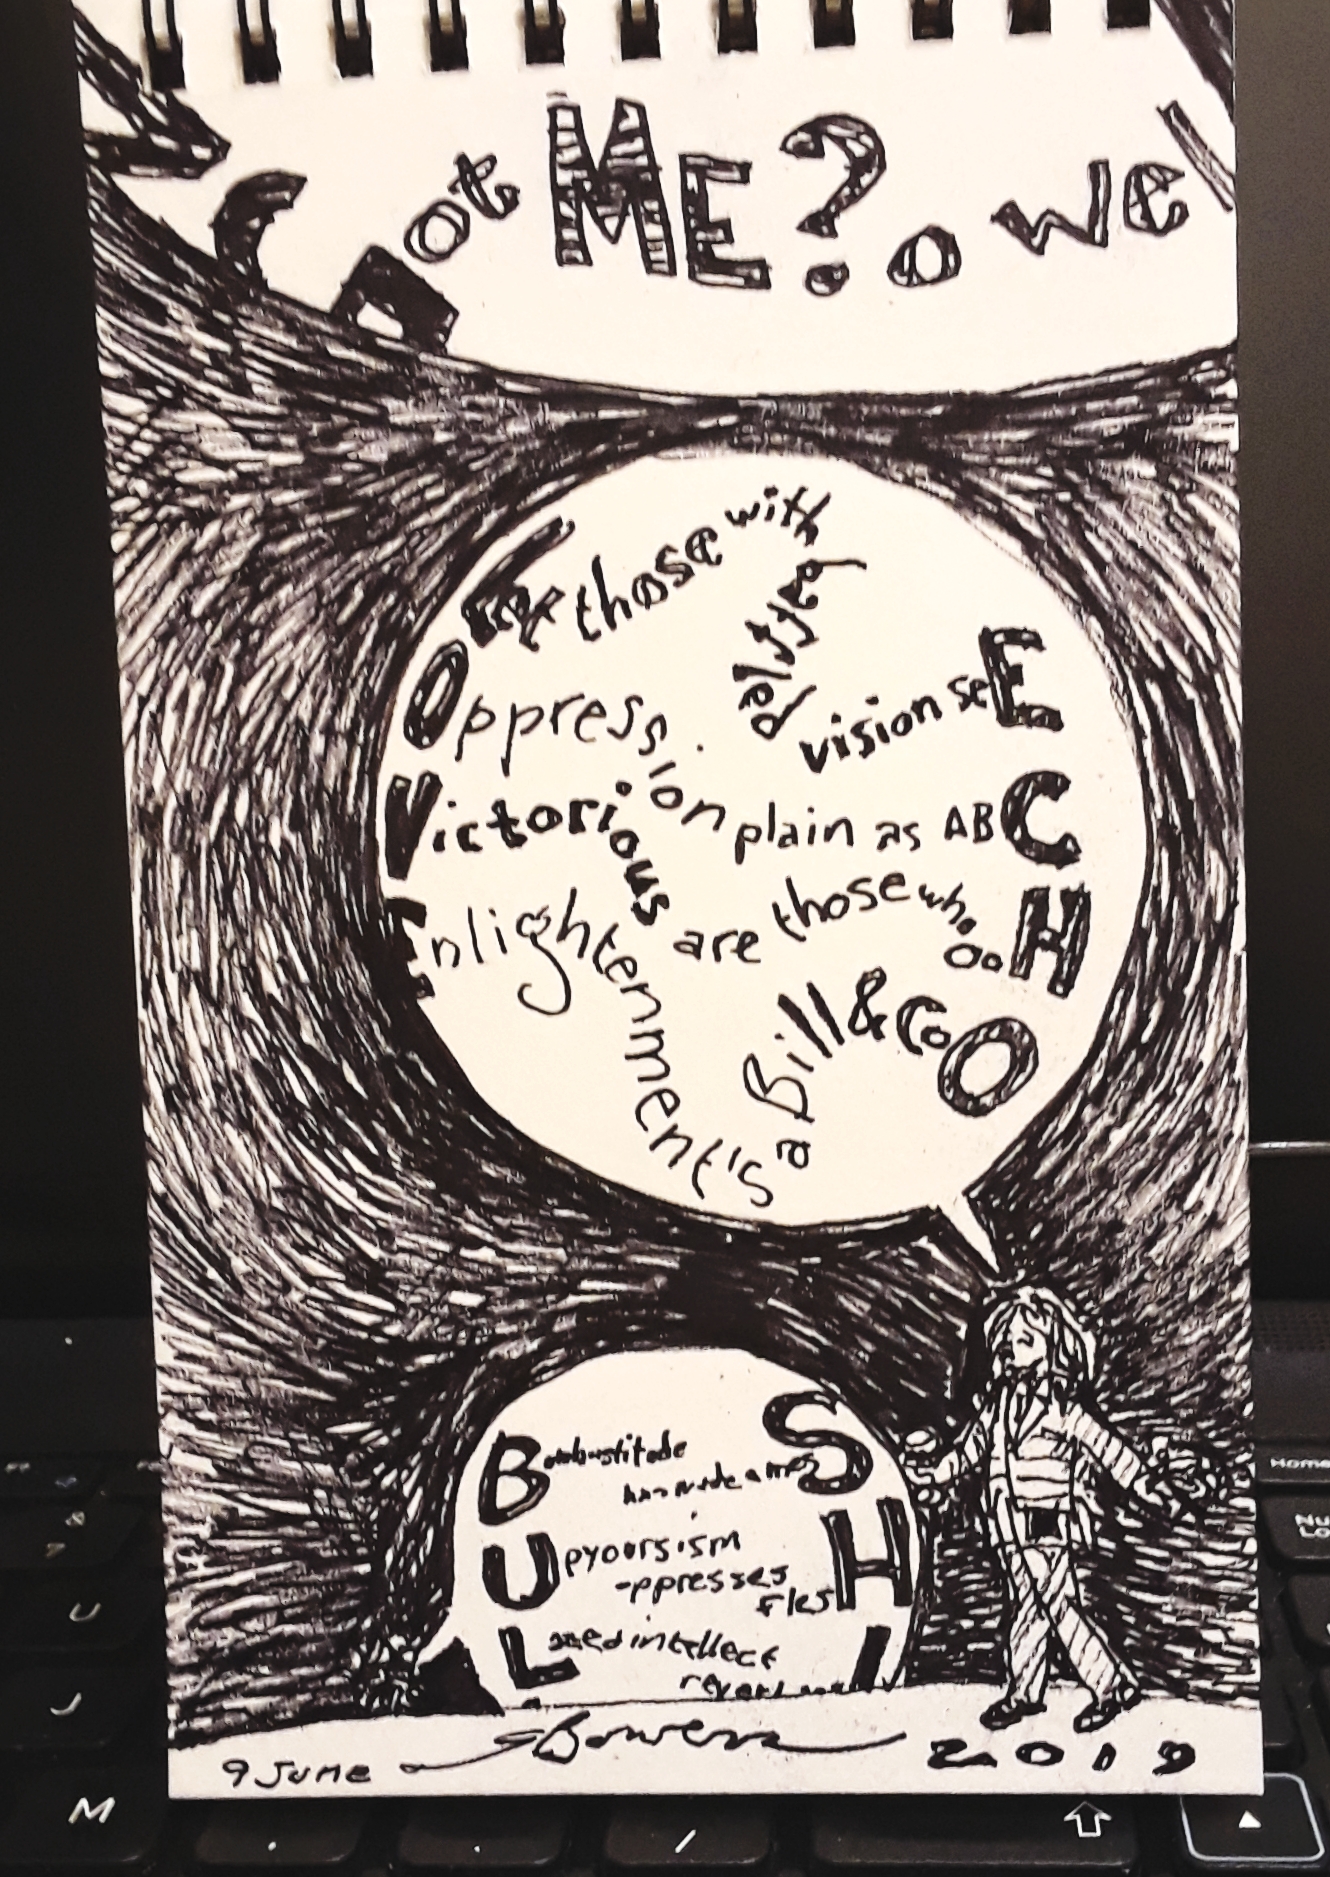 Got ME? o well
Lonely those with
halfjeg
Oppression. vision seE
Victorious plain as ABC
Enlightenment's are those who ooH
a Bill & CoO
Bombustitude
has made a meS
Upyoursism
oppresses
flesH
L intellect
9 June Bowen 2019
M
Home